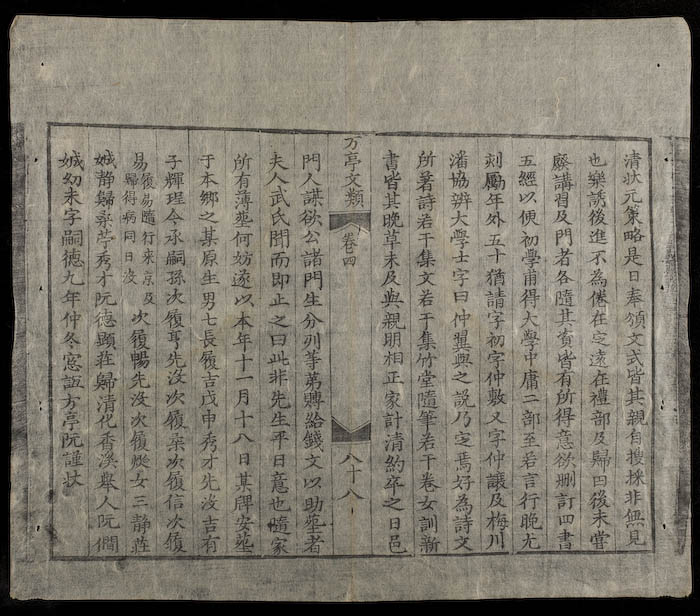 清狀元策略是日奉頒文式皆其親自搜採非無見
也樂誘後進不為倦在定遠在禮部及歸田後未嘗
廢講習及門者各隨其資皆有所得意欲刪訂四書
五經以便初學甫得大學中庸二部至若言行晚尤
刻勵年外五十猶請字初字仲數又字仲讓及梅川
潘協辨大學士字曰仲翼與之說乃定焉好為詩文
所著詩若干集文若干集竹堂隨筆若干卷女訓新
書皆其晚草未及與親朋相正家計清約卒之日邑
方亭文類 卷四 八十八
門人謀欲公諸門生分列等弟賻給錢文以助葬者
夫人武氏聞而即止之曰此非先生平日意也隨家
所有薄葬何妨遂以本年十一月十八日其牌安葬
于本鄉之某原生男七長履吉戊申秀才先沒吉有
子輝琨今承嗣孫次履亨先沒次履桑次履信次履
易履易隨行来京及歸得病同日沒次履暢先沒次履嵸女三靜莊
娍靜歸泰苧秀才阮德顯莊歸清化香溪舉人阮僩
娍幼未字嗣德九年仲冬窓誼方亭阮謹狀